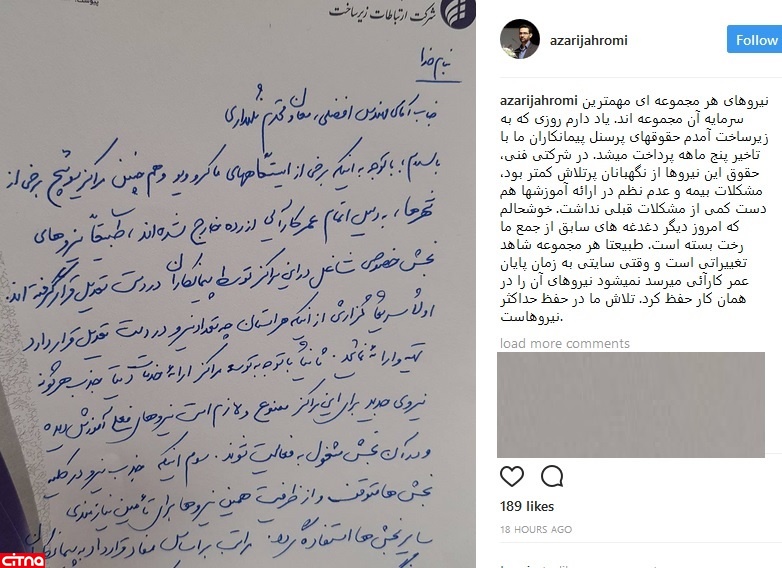 پیوست
شرکت ارتباطات زیرساخت
بنام خدا
جناب آقای مهندس افضلی، معاون محترم نگهداری
باسلام؛ باتوجه به اینکه برخی از ایستگاههای ماکروویو و هم چنین مراکز سوئیچ برخی از
شهرها، به دلیل اتمام عمر کارآئی از رده خارج شده اند، طبیعتاً نیروهای
بخش خصوصی شاغل در این مراکز توسط پیمانکاران در دست تعدیل قرار گرفته اند.
اولاً سریعاً گزارشی از اینکه هر استان چه تعداد نیرو در دست تعدیل قرار دارد
تهیه و ارائه نمائید. ثانیاً با توجه به توسعه مراکز ارائه خدمات دیتا جذب هرگونه
نیروی جدید برای این مراکز ممنوع و لازم است نیروهای فعلی آموزش دیده
و در آن بخش مشغول به فعالیت شوند. سوم اینکه جذب نیرو در کلیه
بخش ها متوقف و از ظرفیت همین نیروها برای تأمین نیازمندی
سایر بخش ها استفاده گردد. مراتب براساس مفاد قرارداد به پیمانکاران
citna
azarijahromi
Follow
azarijahromi نیروهای هر مجموعه ای مهمترین
سرمایه آن مجموعه اند. یاد دارم روزی که به
زیرساخت آمدم حقوقهای پرسنل پیمانکاران ما با
تاخیر پنج ماهه پرداخت میشد. در شرکتی فنی،
حقوق این نیروها از نگهبانان پرتلاش کمتر بود،
مشکلات بیمه و عدم نظم در ارائه آموزشها هم
دست کمی از مشکلات قبلی نداشت. خوشحالم
که امروز دیگر دغدغه های سابق از جمع ما
رخت بسته است. طبیعتا هر مجموعه شاهد
تغییراتی است و وقتی سایتی به زمان پایان
عمر کارآئی میرسد نمیشود نیروهای آن را در
همان کار حفظ کرد. تلاش ما در حفظ حداکثر
نیروهاست.
load more comments
189 likes
18 HOURS AGO